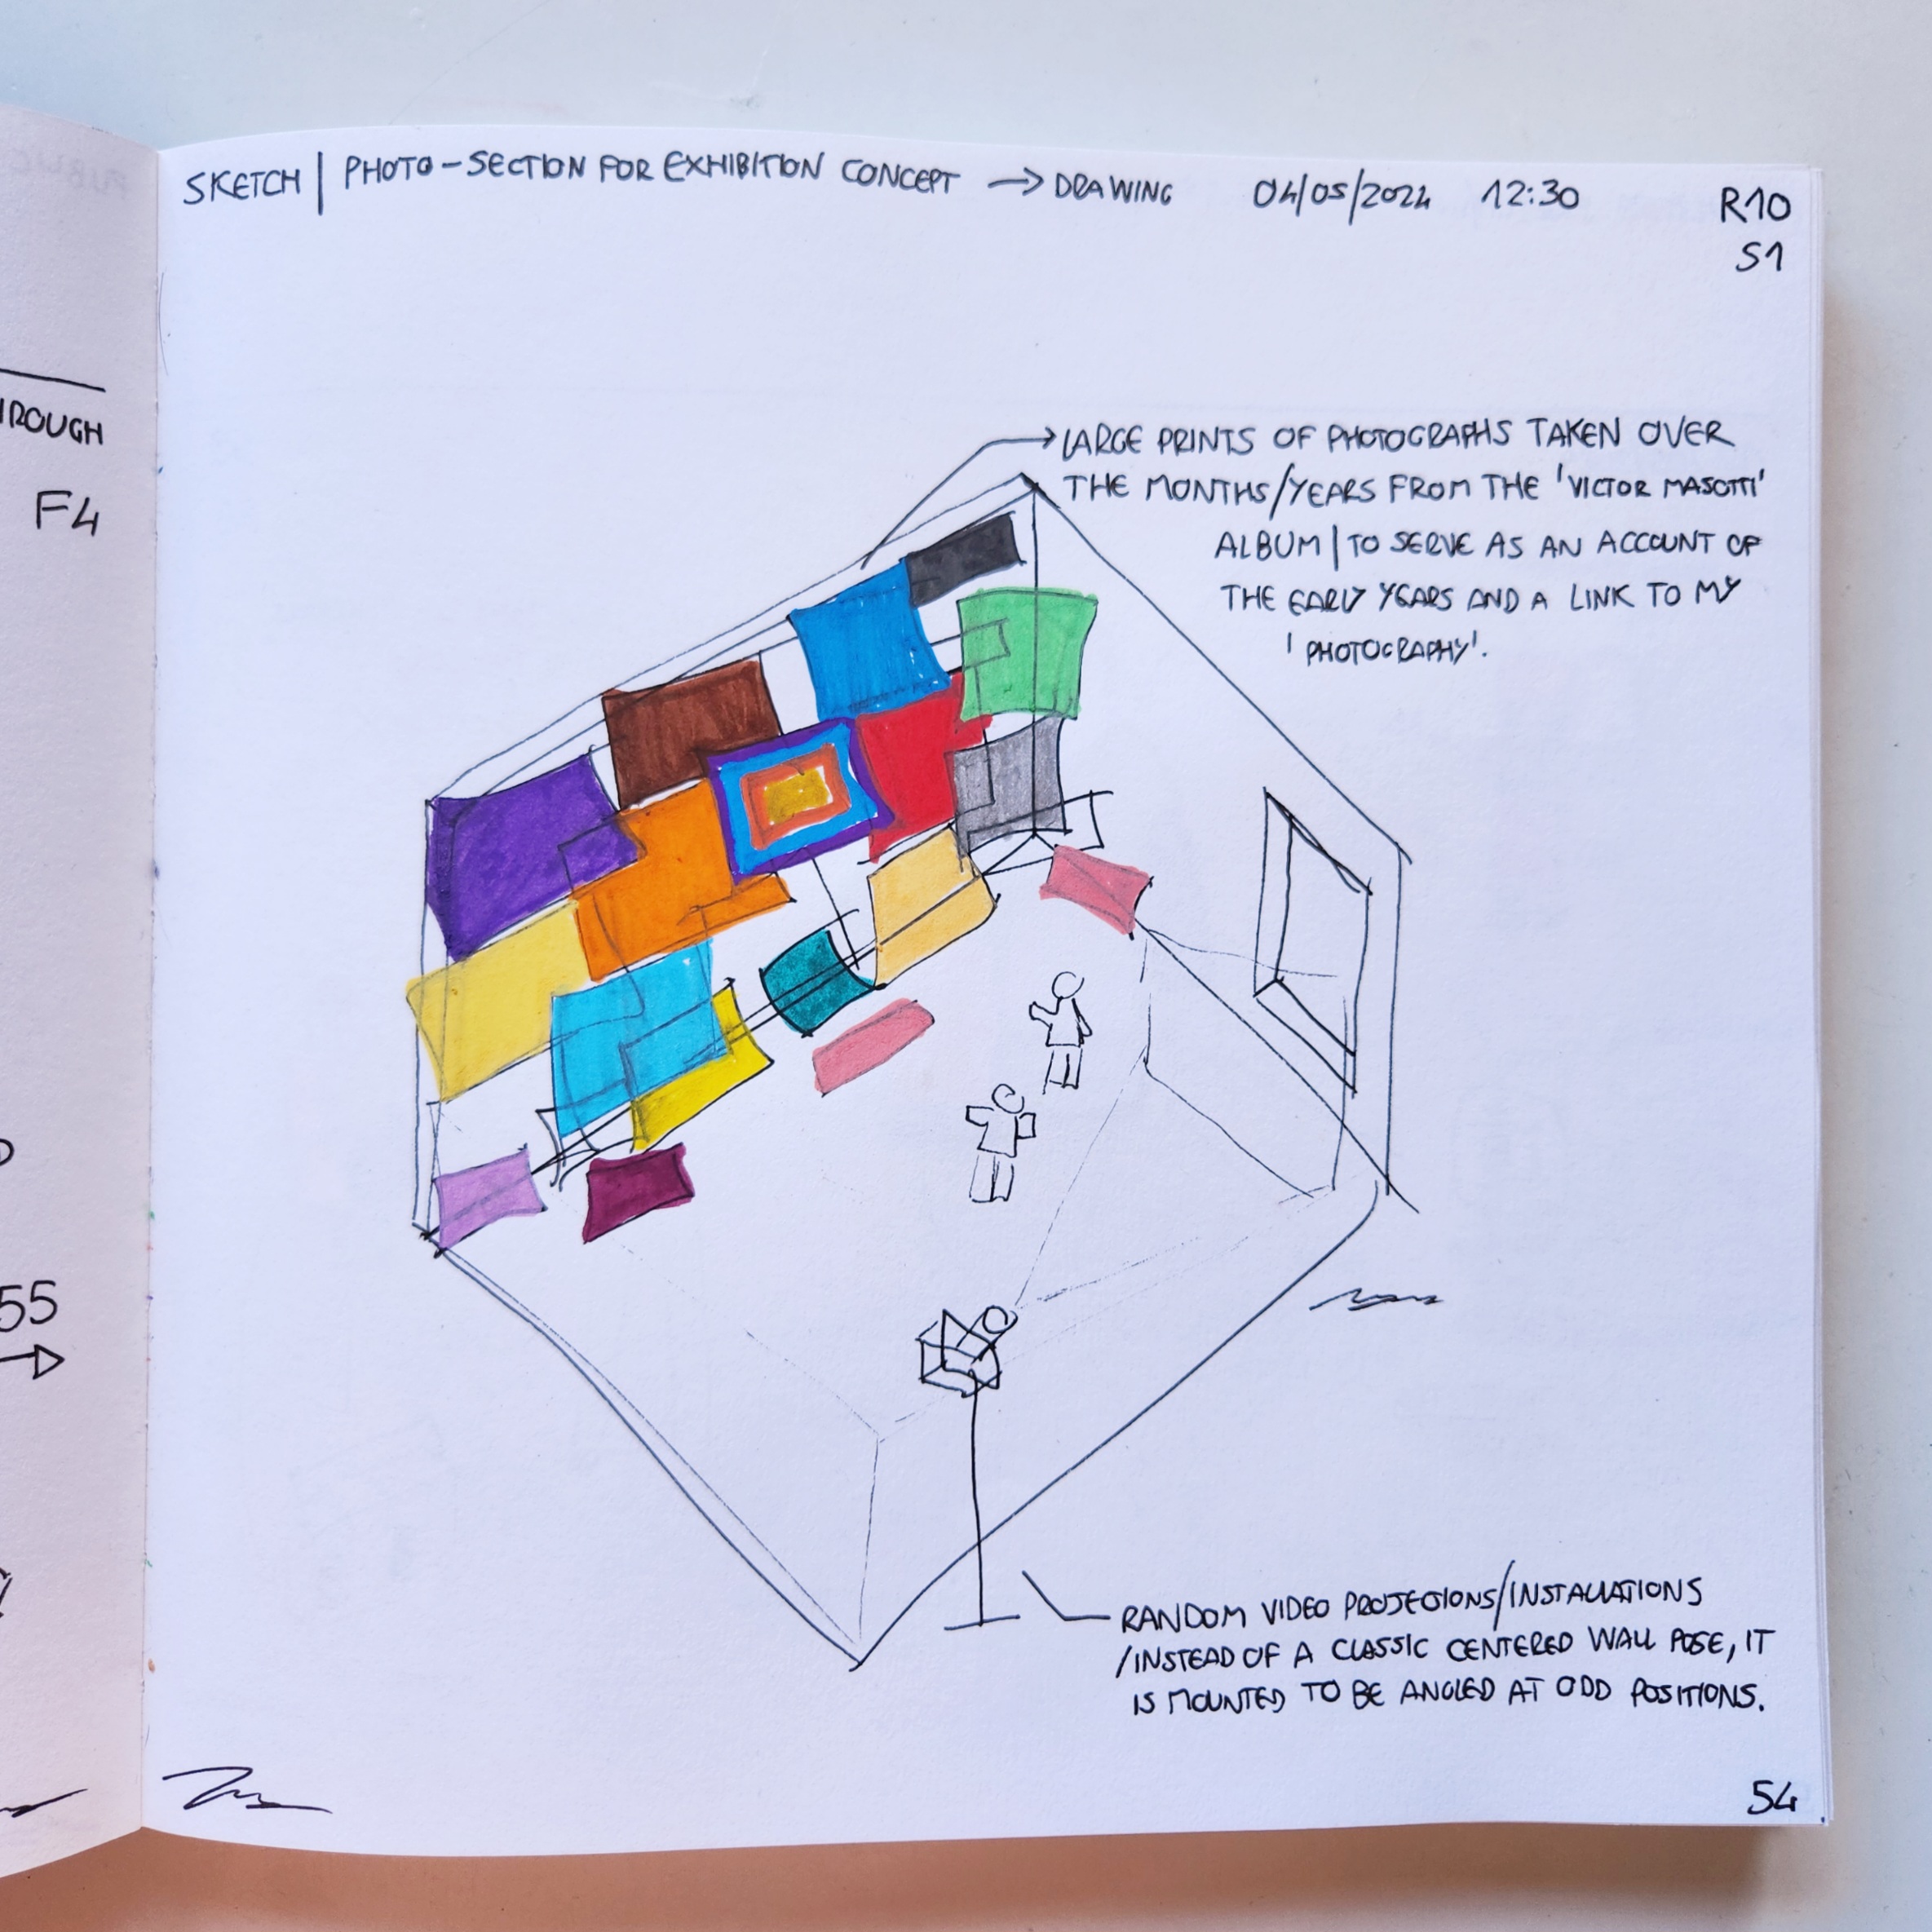 SKETCH | PHOTO-SECTION FOR EXHIBITION CONCEPT → DRAWING 04/05/2024 12:30 R10
S1
LARGE PRINTS OF PHOTOGRAPHS TAKEN OVER
THE MONTHS/YEARS FROM THE 'VICTOR MASOTTI'
ALBUM | TO SERVE AS AN ACCOUNT OF
THE EARLY YEARS AND A LINK TO MY
'PHOTOGRAPHY'.
RANDOM VIDEO PROJECTIONS/INSTALLATIONS
/INSTEAD OF A CLASSIC CENTERED WALL POSE, IT
IS MOUNTED TO BE ANGLED AT ODD POSITIONS.
54
F4
55